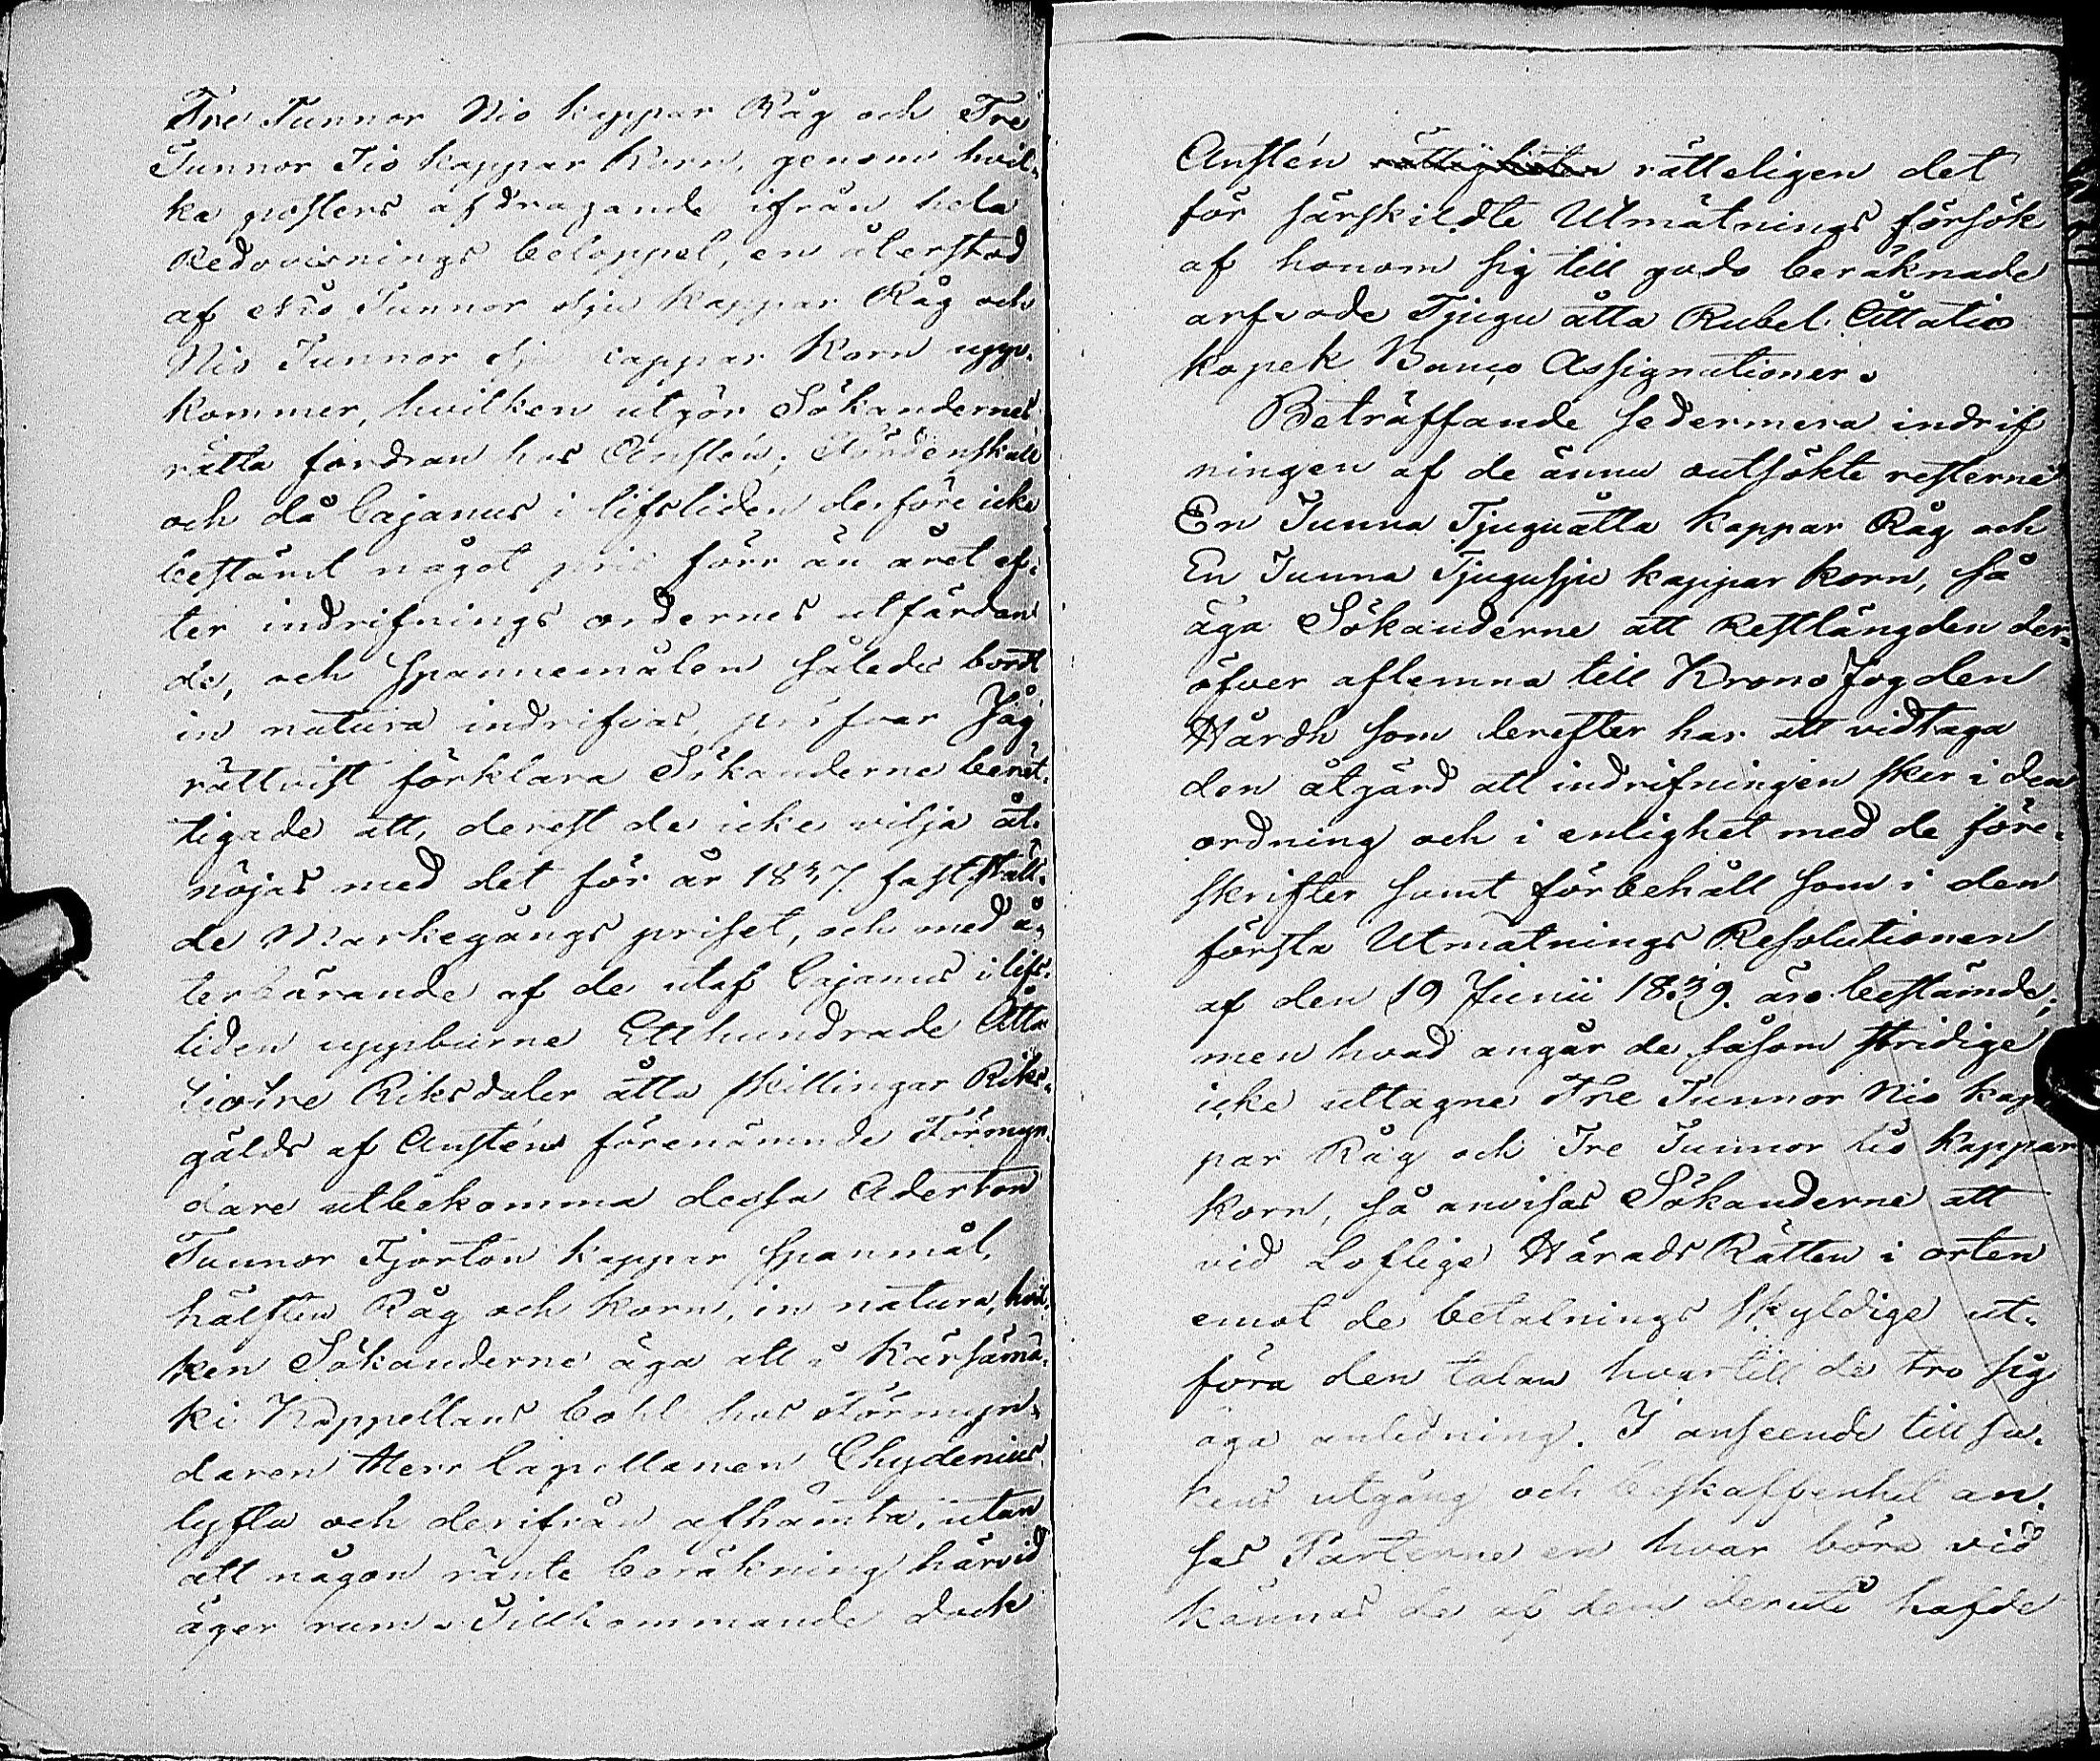 Tre Tunnor Nio kappar Råg och Tre
Tunnor Tio kappar Korn, genom hvil-
ka posters afdragande ifrån hela
Redovisnings beloppet, en återstod
af Nio Tunnor sju kappar Råg och
Nio Tunnor sju kappar Korn upp-
kommer, hvilken utgör Sökandernes
rätta fordran hos Austén;
och då Cajanus i lifstiden derföre icke
bestämt något pris förr än året ef-
ter indrifnings ordernes utfärdan
de, och Spannemålen således bordt
in natura indrifvas, pröfvar Jag
rättvist förklara Sökanderne berät-
tigade att, derest de icke vilja åt-
nöjas med det för år 1837 fastställ-
de Markegångs priset, och med å-
terbärande af de utaf Cajanus i lifs-
tiden uppburne Etthundrade Åtta
tiotre Riksdaler åtta skillingar Riks-
gälds af Austéns förenämnde Förmyn-
dare utbekomma dessa Aderton
Tunnor Fjorton kappar Spanmål,
hälften Råg och Korn, in natura, hvil-
ken Sökanderne äga att i Kärsämä-
ki Kappellans bohl hos Förmyn-
daren Herr Capellanen Chydenius
lyfta och derifrån afhämta, utan
att någon ränte beräkning härvid
äger rum. Tillkommande dock
Austén rättigheten rätteligen det
för särskildte Utmätnings försök
af honom sig till godo beräknade
arfvode Tjugu åtta Rubel Åttatio
kopek Banco Assignationer.
Beträffande sedermera indrif
ningen af de ännu outsökte resterne
En Tunna Tjuguåtta kappar Råg och
En Tunna Tjugusju kappar korn, så
äga Sökanderne att Restlängden der-
öfver aflemna till Krono Fogden
Hårdh som derefter har att vidtaga
den åtgärd att indrifningen sker i den
ordning och i enlighet med de före-
skrifter samt förbehåll som i den
första Utmätnings Resolutionen
af den 19 Junii 1839. äro bestämde;
men hvad angår de såsom stridige
icke uttagne Tre Tunnor Nio kap-
par Råg och Tre Tunnor tio kappar
korn, så anvisas Sökanderne att
vid Loflige HäradsRätten i orten
emot de betalnings skyldige ut-
föra den talan hvartill de tro sig
äga anledning. I anseende till sa-
kens utgång och beskaffenhet an-
ses Parterne en hvar böra vid
kännas de af dem deruti hafde